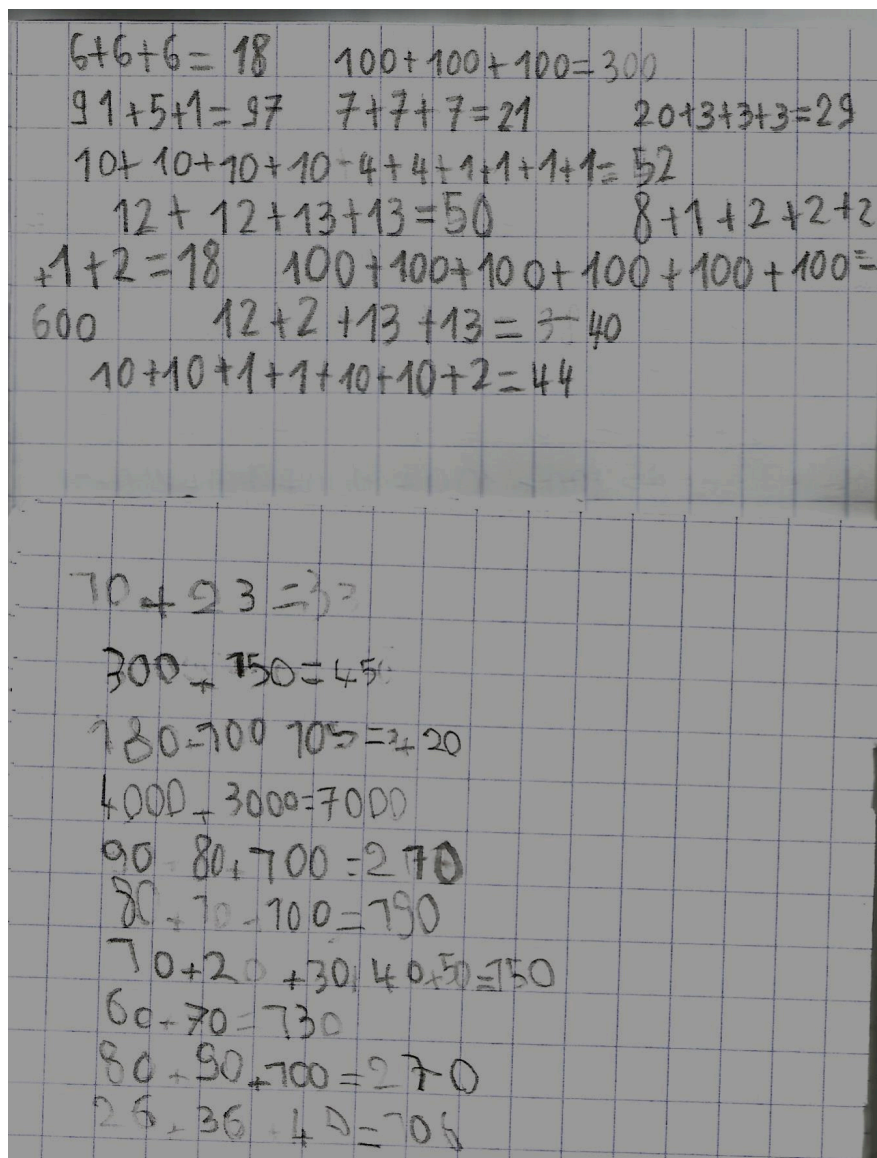 6+6+6= 18 100+100+100=300
91+5+1=97 7+7+7=21 20+3+3+3=29
10+10+10+10-4+4+1+1+1+1= 52
12+ 12+13+13=50 8+1+2+2+2
+1+2=18 100+100+100+100+100+100=
600 12+2+13+13= 40
10+10+1+1+10+10+2=44
10+23=33
300+150=450
180-100 105= 20
4000+3000=7000
90 80+100=270
80+10+100=190
10+20+30+40+50=150
60+70=130
80+90+100=270
26+36